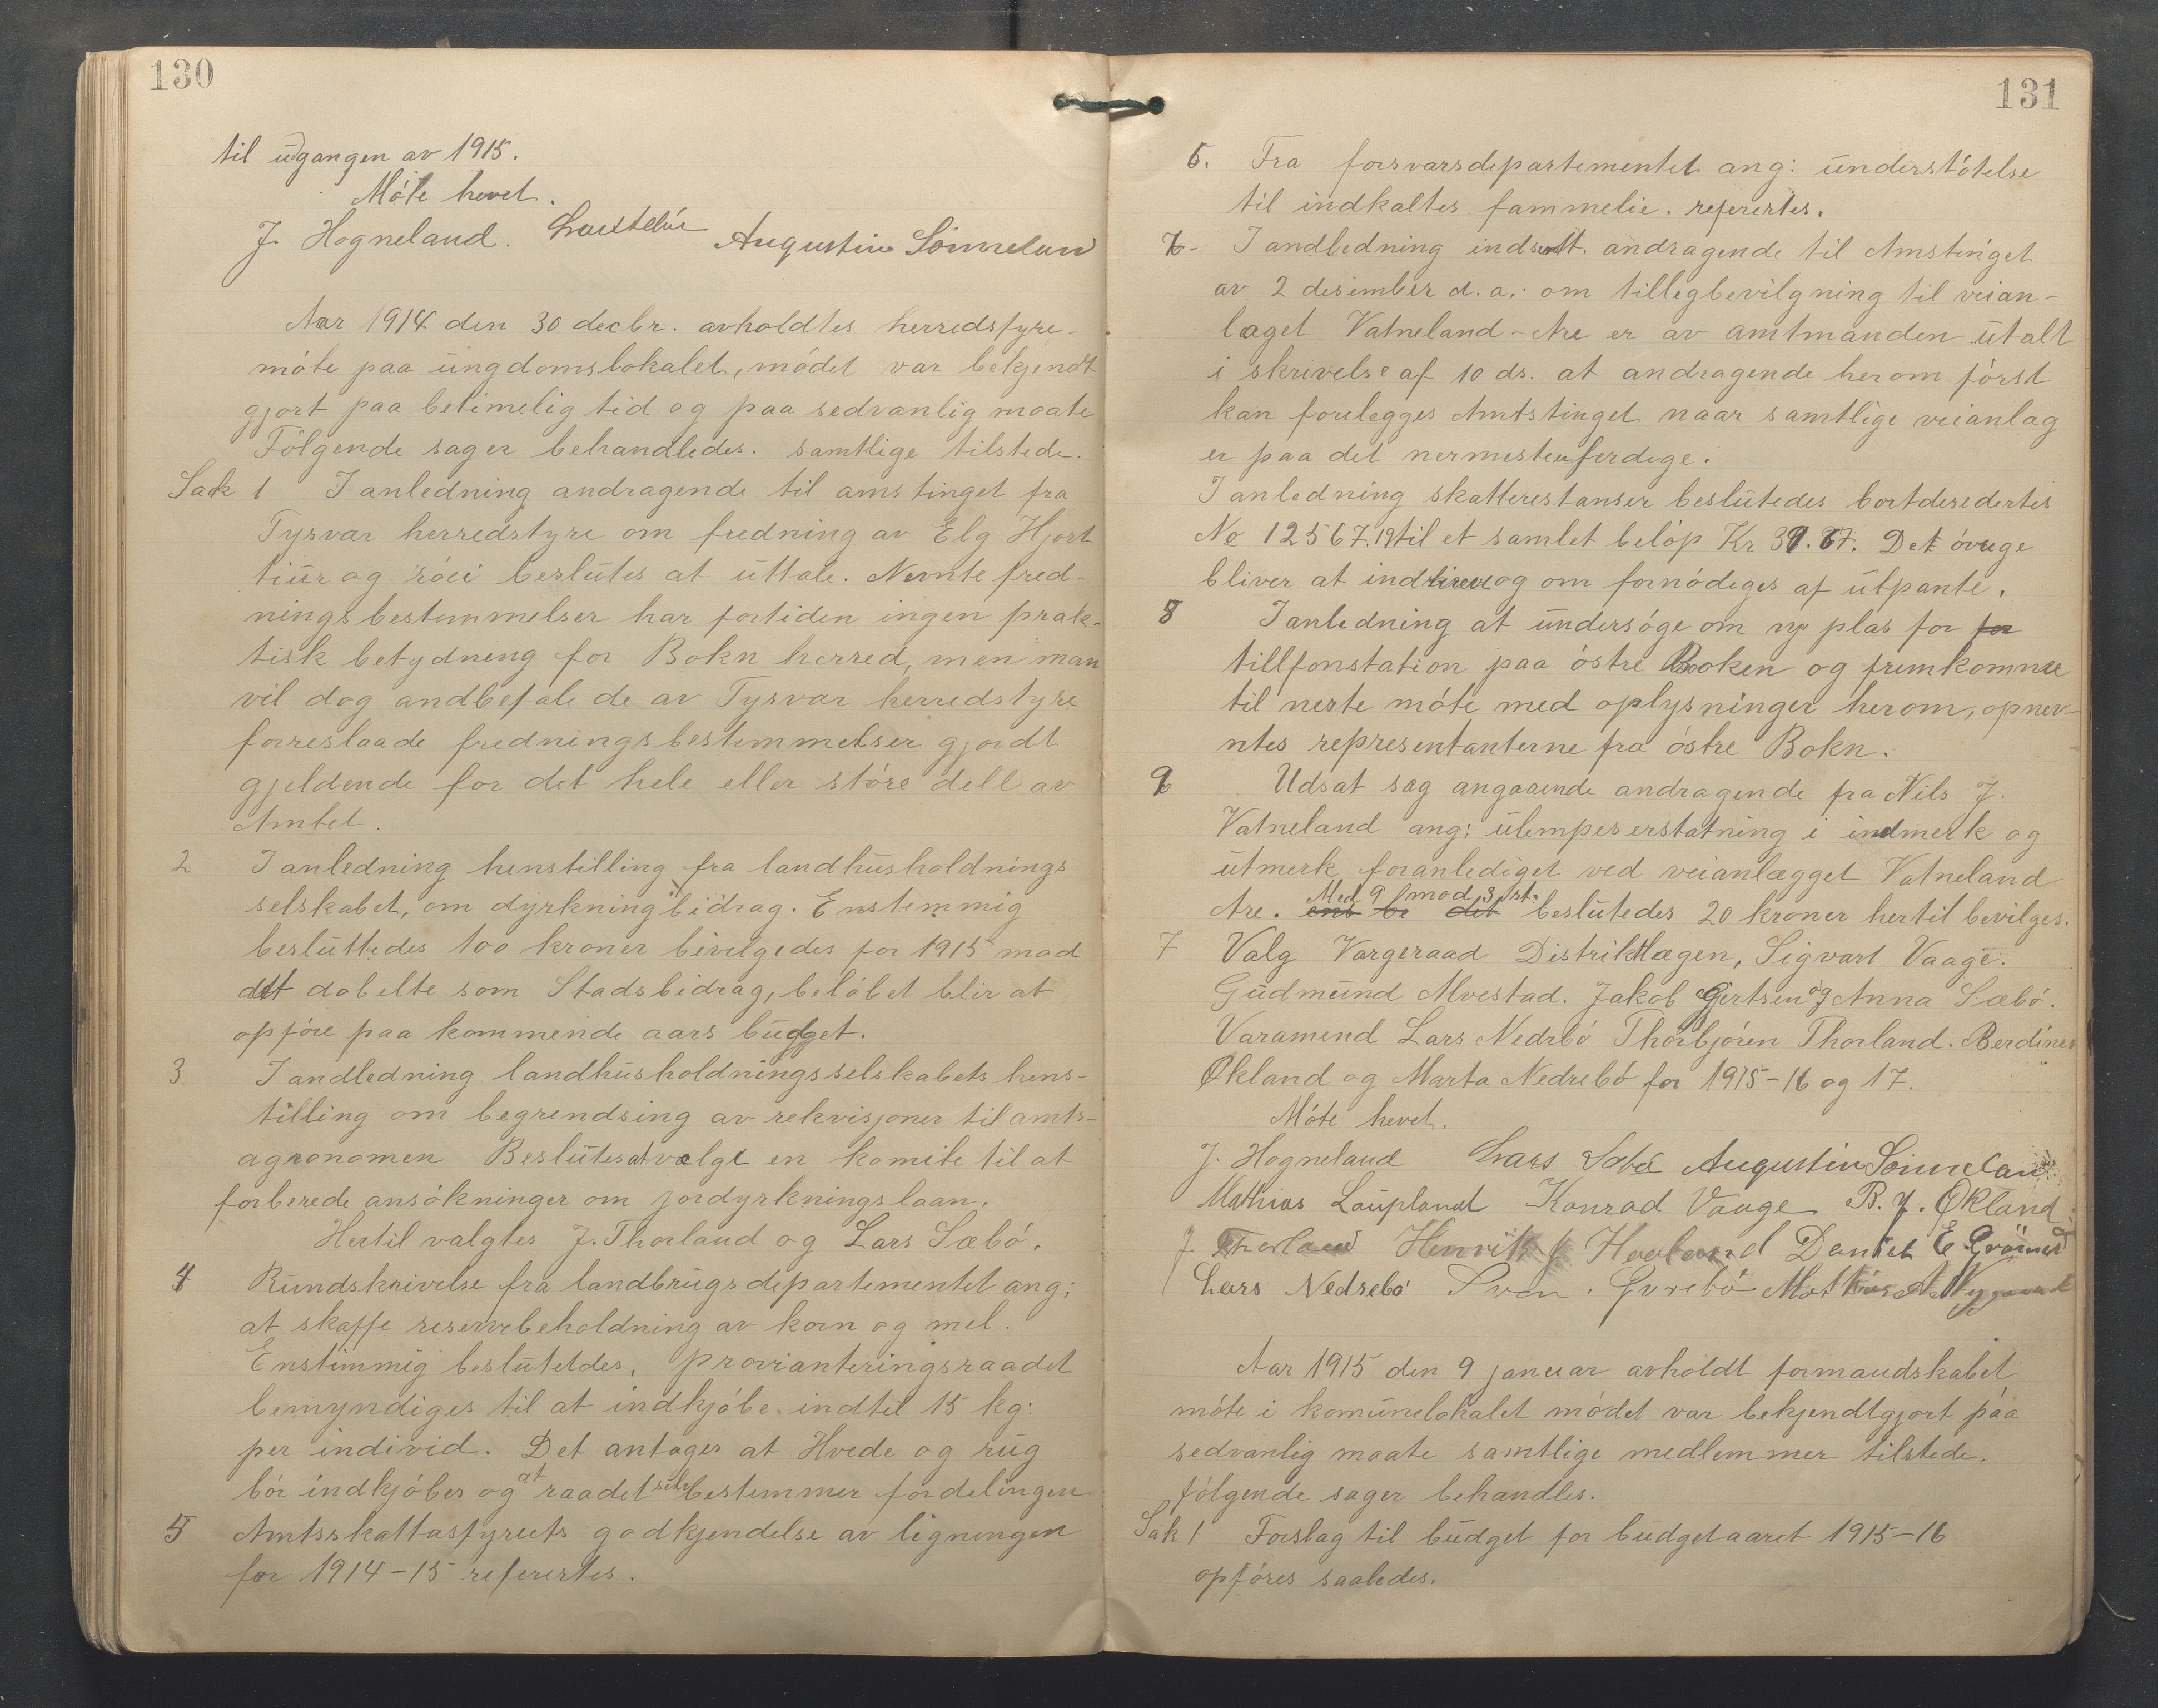 130
til udgangen av 1915.
Móte hevet.
J. Hogneland. Augustin Sónnelan
Aar 1914 den 30 decbr. avholdtes herredstyre-
móte paa ungdomslokalet, módet var bekjendt
gjort paa betimelig tid og paa sedvanlig maate
Fólgende sager behandledes. samtlige tilstede.
Sak 1 I anledning andragende til amstinget fra
Tysvar herredstyre om fredning av Elg Hjort
tiur og róei beslutes at uttale. Nevnte fred-
ningsbestemmelser har fortiden ingen prak-
tisk betydning for Bokn herred, men man
vil dog andbefale de av Tysvar herredstyre
forreslaade fredningsbestemmelser gjordt
gjeldende for det hele eller stóre dell av
Amtet.
2 I anledning henstilling fra landhusholdnings
selskabet, om dyrkningsbidrag. Enstemmig
besluttedes 100 kroner bivilgedes for 1915 mod
dett dobelte som Stadsbidrag, belóbet blir at
opfóre paa kommende aars budget.
3 I andledning landhusholdningsselskabets hens-
tilling om begrendsing av rekvisjoner til amts-
agronomen Beslutes at valgt en komite til at
forberede ansókninger om jordyrkningslaan.
Hertil valgtes J. Thorland og Lars Sæbó.
4 Rundskrivelse fra landbrugsdepartementet ang;
at skaffe reservebeholdning av korn og mel.
Enstimmig beslutetdes, provianteringsraadet
bemyndiges til at indkjóbe indtil 15 kg:
per individ. Det antages at Hvede og rug
bór indkjóbes og at raadet selv bestemmer fordelingen
5 Amtsskattastyrets godkjendelse av ligningen
for 1914-15 referertes.
131
5. Fra forsvarsdepartementet ang: understótelse
til indkaltes fammelie. referertes.
6- I andledning indsentt. andragende til Amstinget
av 2 desember d.a. om tillegbevilgning til veian-
laget Vatneland-Are er av amtmanden utalt
i skrivelse af 10 ds. at andragende herom fórst
kan forelegges Amtstinget naar samtlige veianlag
er paa det nermeste uferdege.
I anledning skatterestanser beslutedes bortdesedertes
No 12567.19 til et samlet belóp Kr 39.67. Det óvrige
bliver at inddrives og om fornódeges af utpante.
8 I anledning at undersóge om ny plas for for
tillfonstation paa óstre Boken og fremkomme
til neste móte med oplysninger herom, opnev-
ntes representanterne fra óstre Bokn.
9 Udsat sag angaaende andragende fra Nils J.
Vatneland ang: ulempeserstatning i indmerk og
utmerk foranlediget ved veianlægget Vatneland
Are. ens be det Med 9 mod 3 st. beslutedes 20 kroner hertil bevilges.
7 Valg Vergeraad Distriktlægen, Sigvart Vaage.
Gudmund Alvestad. Jakob Gjertsen og Anna Sæbó.
Varamend Lars Nedrbó Thorbjóren Thorland. Berdines
Økland og Marta Nedrebó for 1915-16 og 17.
Móte hevet.
J. Hogneland Lars Sæbó Augustin Sónnelan
Mathias Laupland Konrad Vaage B. J. Økland
J Thorland Henrik J Hovland Daniel E. Grónnes
Lars Nedrebó Sven. Gurebó Matias A Nygaard
Aar 1915 den 9 januar avholdt formandskabet
móte i komunelokalet módet var bekjendtgjort paa
sedvanlig maate samtlige medlemmer tilstede.
fólgende sager behandles.
Sak 1 Forslag til budget for budgetaaret 1915-16
opfóres saaledes.